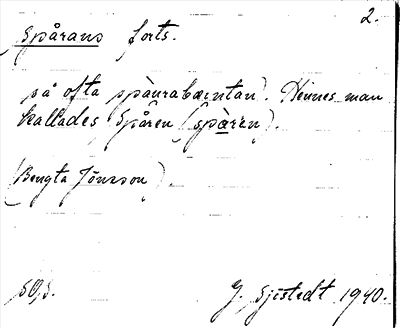 2.
Spårans forts.
så ofta spåurabæintan). Hennes man
kallades Spåren (spàrèn).
(Bengta Jönsson).
G. Sjöstedt 1940.